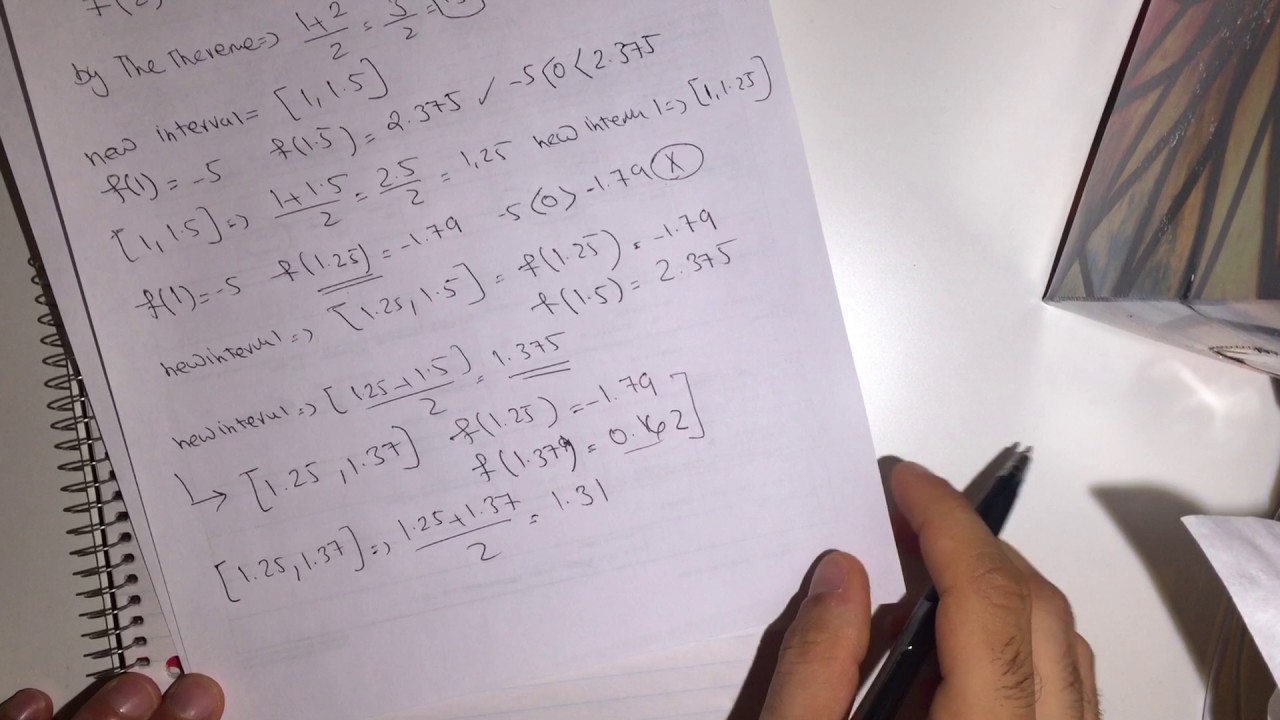 by The Thereme=> 1+2/2 = 3/2 =
new interval= [1, 1.5]
f(1) = -5 f(1.5) = 2.375 ✓ -5<0<2.375
[1, 1.5]=> 1+1.5/2 = 2.5/2 = 1,25 new interval=> [1, 1.25]
f(1)=-5 f(1.25)=-1.79 -5<0> -1.79 X
new interval=> [1.25, 1.5] = f(1.25) = -1.79
f(1.5) = 2.375
new interval=> [1.25+1.5/2] = 1.375
↳ [1.25, 1.37] f(1.25) = -1.79
f(1.379) = 0.162]
[1.25, 1.37]=> 1.25+1.37/2 = 1.31